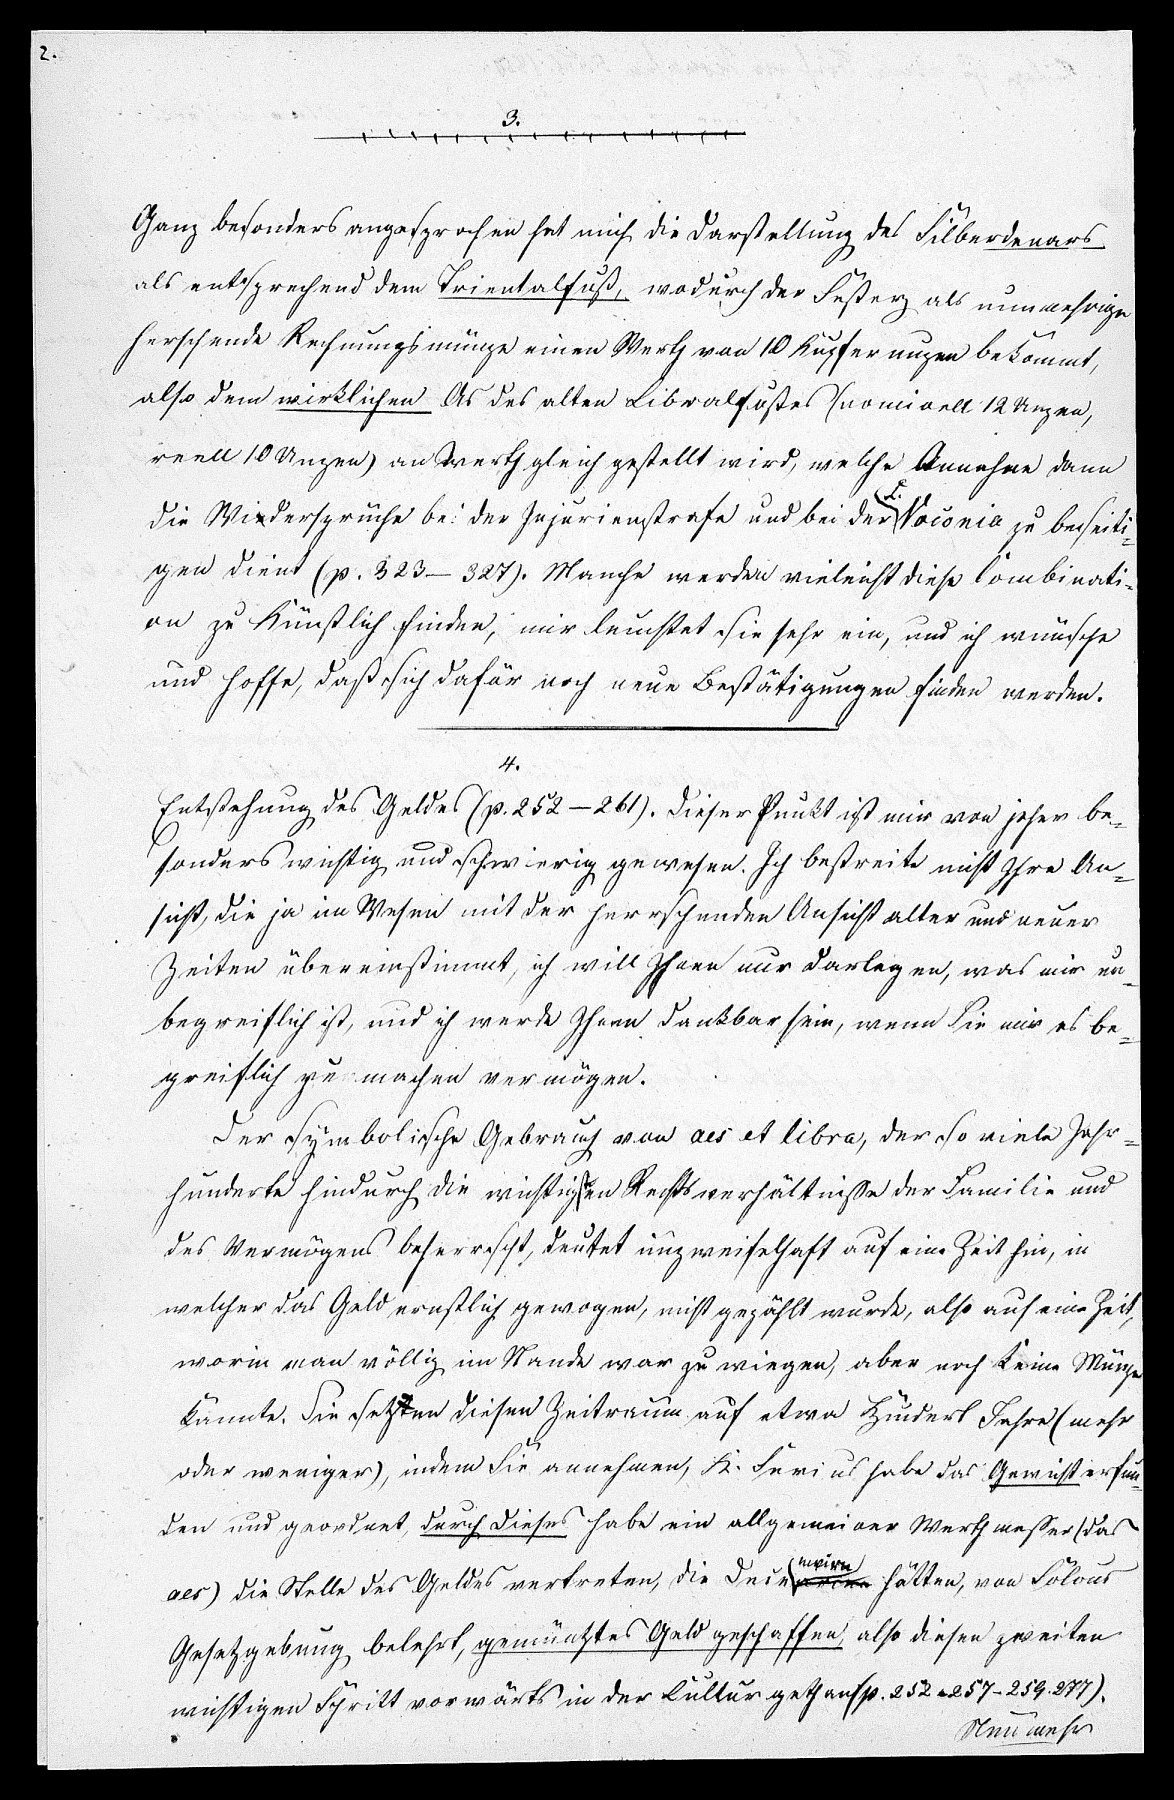 2.
3.
Ganz besonders angesprochen hat mich die Darstellung des Silberdenars
als entsprechend dem Trientalfuß, wodurch der Sesterz als nunmehrige
herschende Rechnungsmünze einen Werth von 10 Kupferunzen bekommt,
also dem wirklichen As des alten Libralfußes (nominell 12 Unzen,
reell 10 Unzen) an Werth gleich gestellt wird, welche Annahme dann
die Widersprüche bei der Injurienstrafe und bei der L. Voconia zu beseiti=
gen dient (p. 323–327). Manche werden vieleicht diese Combinati=
on zu künstlich finden, mir leuchtet sie sehr ein, und ich wünsche
und hoffe, daß sich dafür noch neue Bestätigungen finden werden.
4.
Entstehung des Geldes (p. 252–261). Dieser Punkt ist mir von jeher be=
sonders wichtig und schwierig gewesen. Ich bestreite nicht Ihre An=
sicht, die ja im Wesen mit der herrschenden Ansicht alter und neuer
Zeiten übereinstimmt, ich will Ihnen nur darlegen, was mir un=
begreiflich ist, und ich werde Ihnen dankbar sein, wenn Sie mir es be=
greiflich zu machen vermögen.
Der symbolische Gebrauch von aes et libra, der so viele Jahr=
hunderte hindurch die wichtigsten Rechtsverhältniße der Familie und
des Vermögens beherrscht, deutet unzweifelhaft auf eine Zeit hin, in
welcher das Geld ernstlich gewogen, nicht gezählt wurde, also auf eine Zeit,
worin man völlig im Stande war zu wiegen, aber noch keine Münze
kannte. Sie setzen diesen Zeitraum auf etwa hundert Jahre (mehr
oder weniger), indem Sie annehmen, K. Servius habe das Gewicht erfun=
den und geordnet, durch dieses habe ein allgemeiner Werthmesser (das
aes) die Stelle des Geldes vertreten, die Decemvirn hätten, von Solons
Gesetzgebung belehrt, gemünztes Geld geschaffen, also diesen zweiten
wichtigen Schritt vorwärts in der Kultur gethan (p. 252-257-259. 277).
Nunmehr